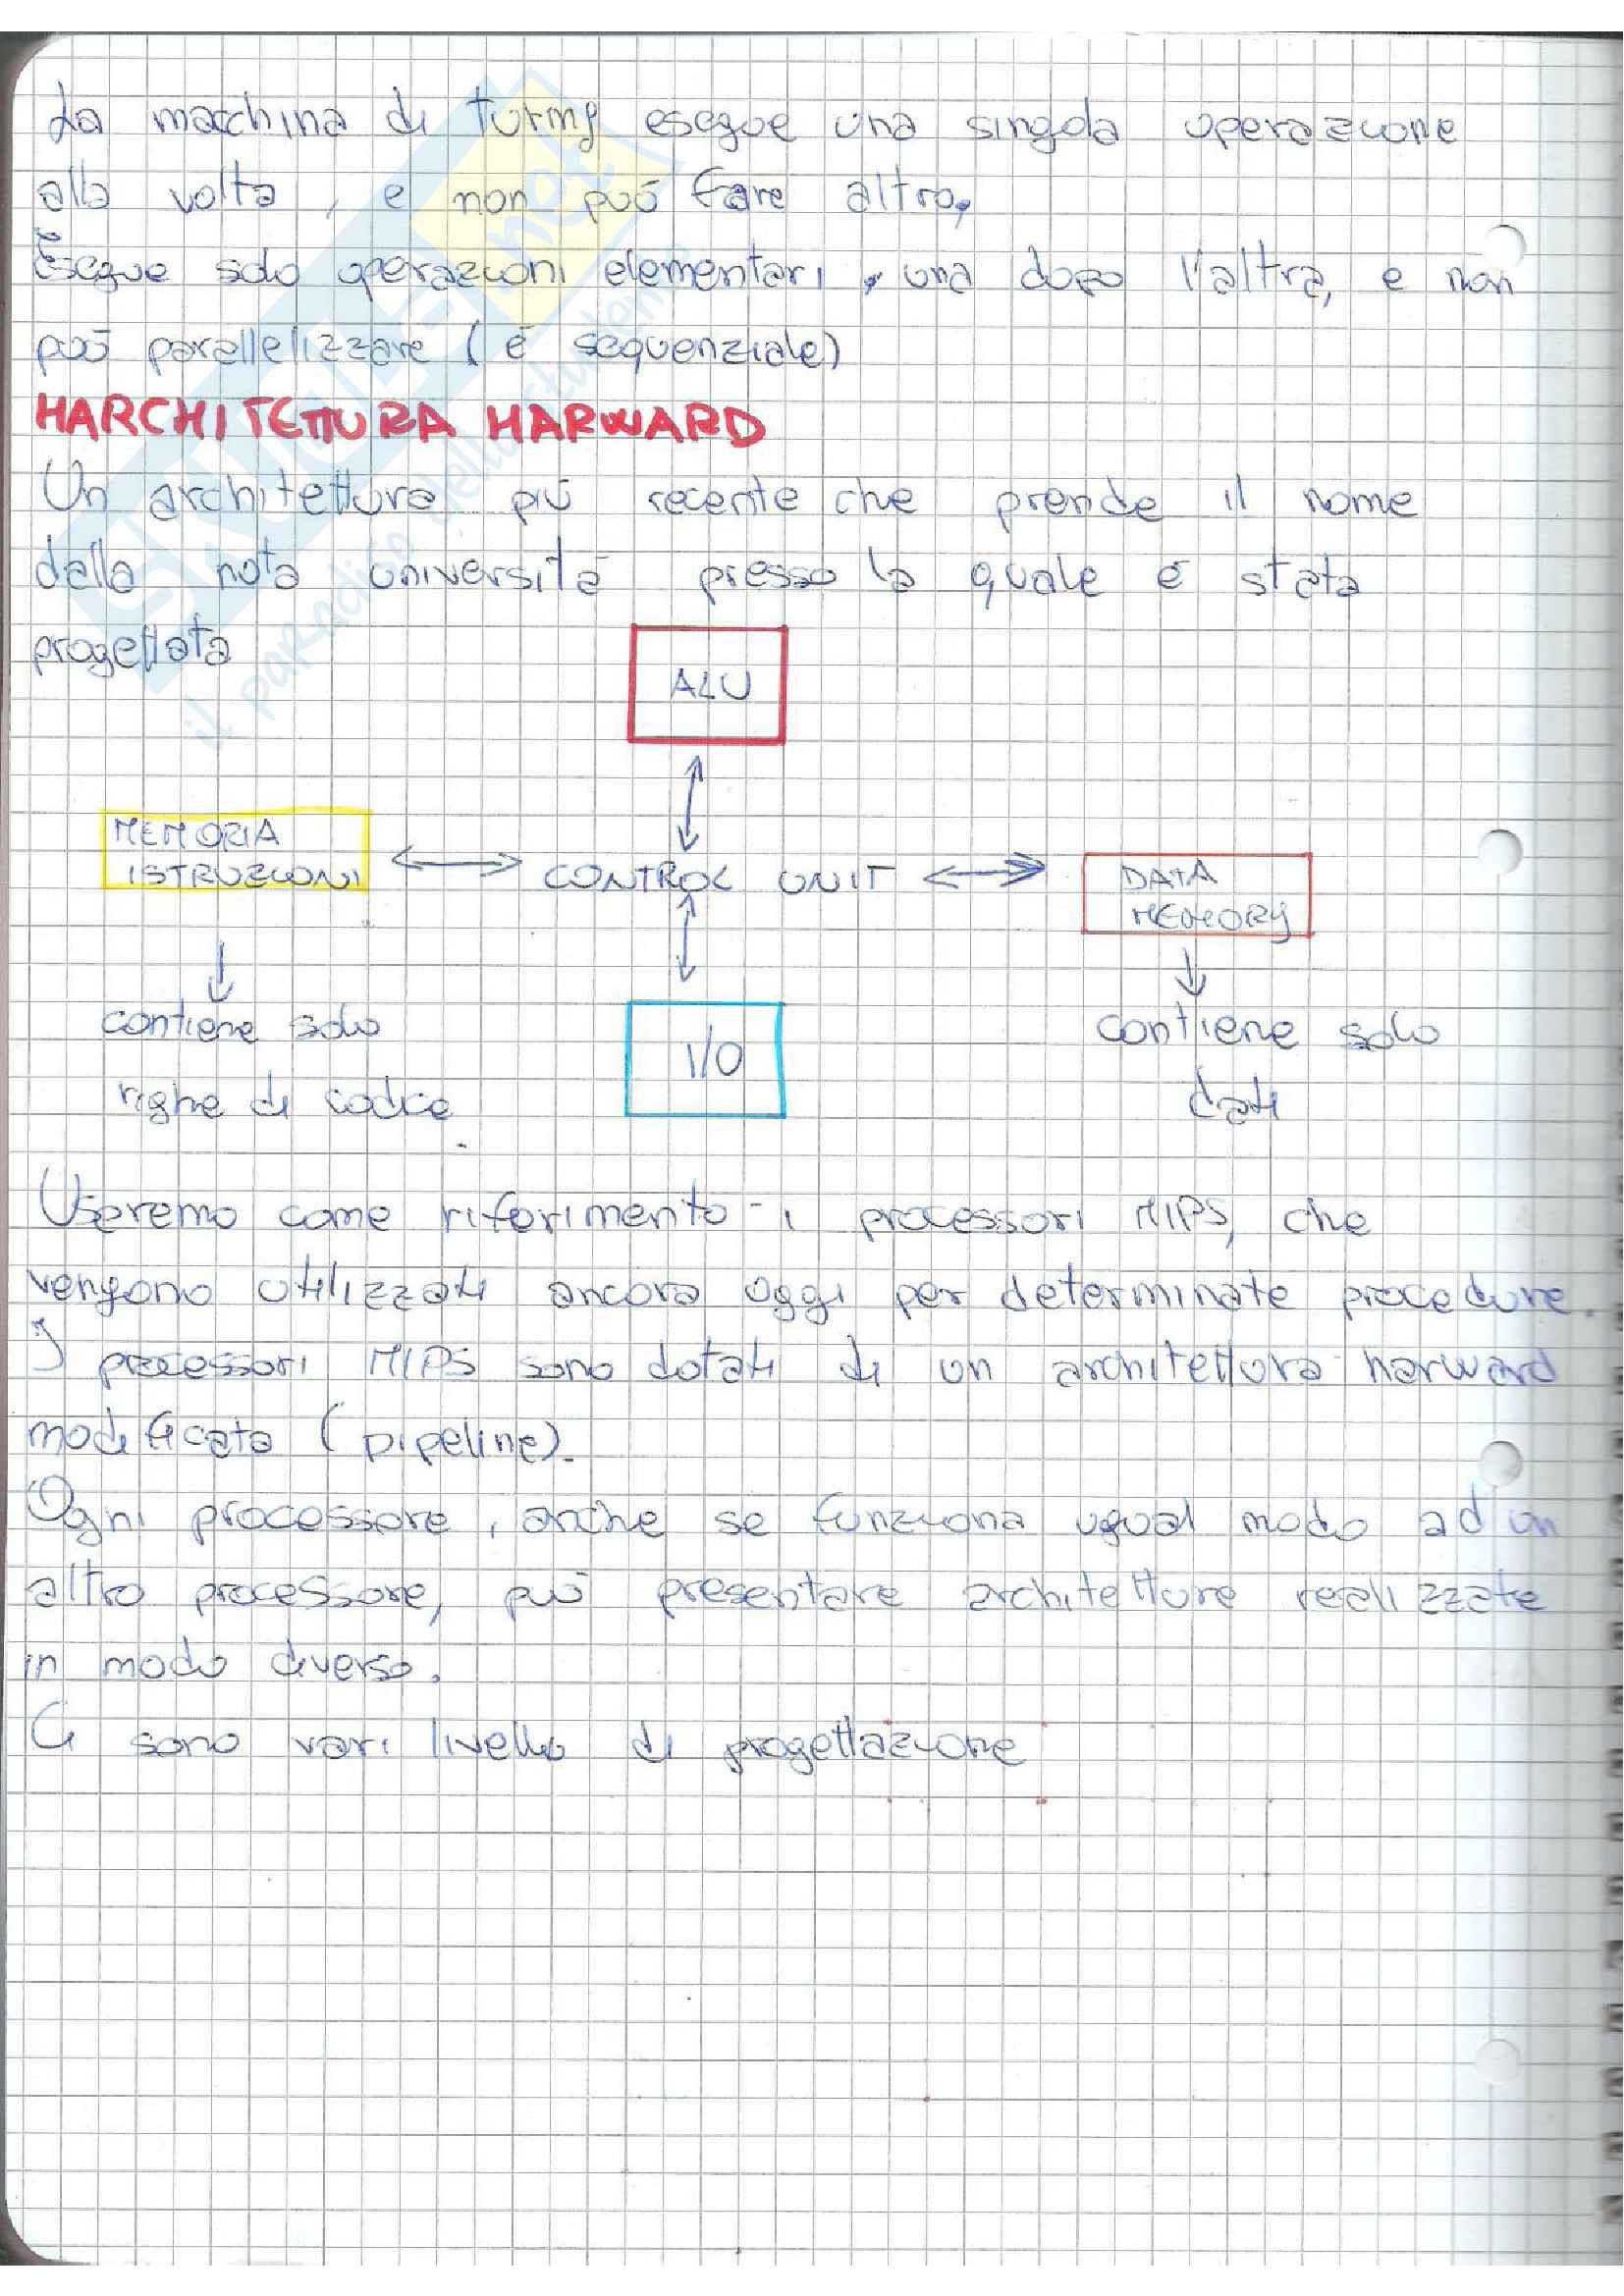 La macchina di Turing esegue una singola operazione
alla volta, e non può fare altro,
Esegue solo operazioni elementari, una dopo l'altra, e non
può parallelizzare (è sequenziale)
HARCHITETTURA HARWARD
Un architettura più recente che prende il nome
dalla nota università presso la quale è stata
progettata
ALU
MEMORIA
ISTRUZIONI
CONTROL UNIT
DATA
MEMORY
contiene solo
righe di codice
I/O
contiene solo
dati
Useremo come riferimento i processori MIPS, che
vengono utilizzati ancora oggi per determinate procedure.
I processori MIPS sono dotati di un architettura harward
modificata (pipeline).
Ogni processore, anche se funziona ugual modo ad un
altro processore, può presentare architetture realizzate
in modo diverso.
Ci sono vari livello di progettazione
SKUOLA.net
il paradiso dello studente